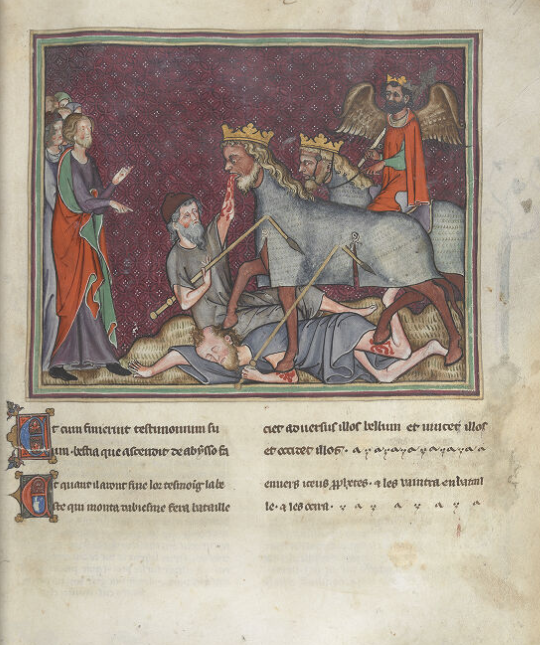 Et cum finierint testimonium su
um · bestia que ascendit de abysso fa
ciet aduersus illos bellum et uincet illos
et occidet illos ·
Et quant il auront fine lor tesmoig la be
ste qui monta dabiesme fera bataille
enuers iceus pphetes · ⁊ les uaintra en batail
le · ⁊ les ocira ·